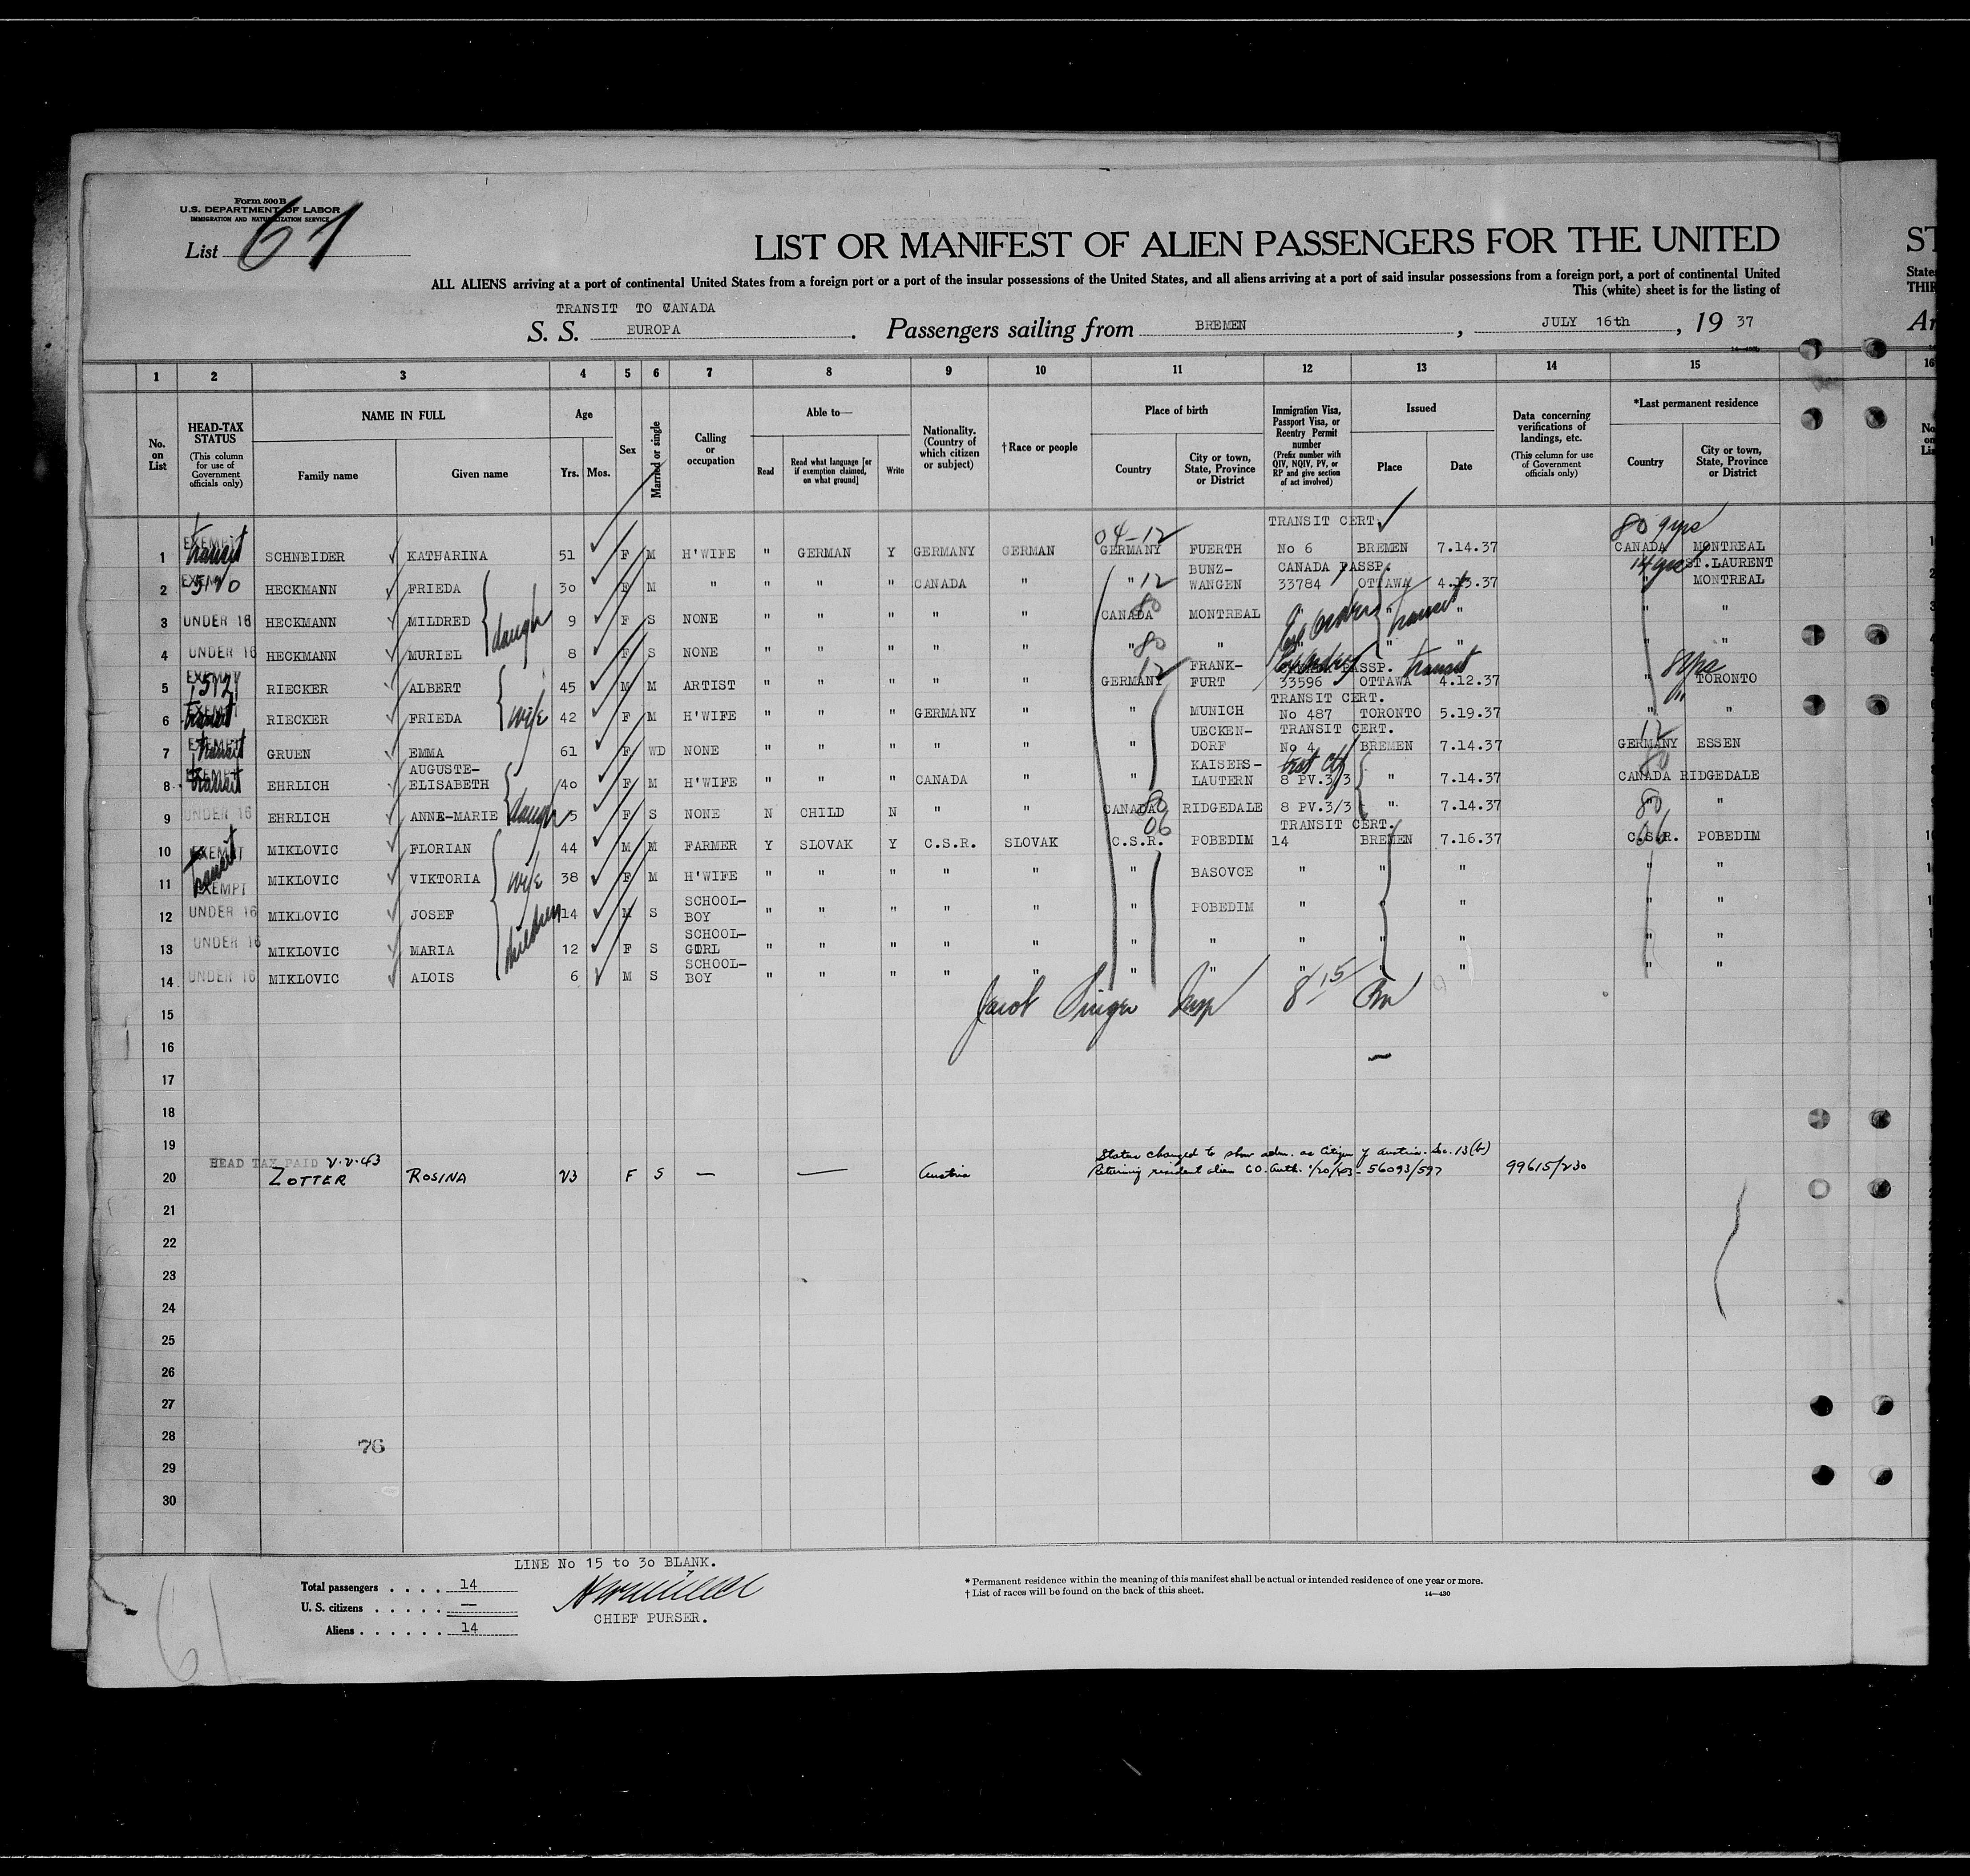 Form 500B
U.S. DEPARTMENT OF LABOR
IMMIGRATION AND NATURALIZATION SERVICE
List 61
LIST OR MANIFEST OF ALIEN PASSENGERS FOR THE UNITED ST
ALL ALIENS arriving at a port of continental United States from a foreign port or a port of the insular possessions of the United States, and all aliens arriving at a port of said insular possessions from a foreign port, a port of continental United States
This (white) sheet is for the listing of
TRANSIT TO CANADA
S. S. EUROPA. Passengers sailing from BREMEN, JULY 16th, 19 37
1 2 3 4 5 6 7 8 9 10 11 12 13 14 15 16
No. on List
HEAD-TAX STATUS
(This column for use of Government officials only)
NAME IN FULL
Family name
Given name
Age
Yrs. Mos.
Sex
Married or single
Calling or occupation
Able to—
Read
Read what language [or if exemption claimed, on what ground]
Write
Nationality. (Country of which citizen or subject)
†Race or people
Place of birth
Country
City or town, State, Province or District
Immigration Visa, Passport Visa, or Reentry Permit number
(Prefix number with QIV, NQIV, PV, or RP and give section of act involved)
Issued
Place
Date
Data concerning verifications of landings, etc.
(This column for use of Government officials only)
*Last permanent residence
Country
City or town, State, Province or District
TRANSIT CERT.
04-12
80 9yrs
1 EXEMPT transit SCHNEIDER KATHARINA 51 F M H'WIFE " GERMAN Y GERMANY GERMAN GERMANY FUERTH No 6 BREMEN 7.14.37 CANADA MONTREAL
2 EXEMPT HECKMANN FRIEDA 30 F M " " " " CANADA " " 12 BUNZ-WANGEN CANADA PASSP. 33784 OTTAWA 4.13.37 " 14yrs ST.LAURENT MONTREAL
3 UNDER 16 HECKMANN MILDRED daugh 9 F S NONE " " " " " CANADA 80 MONTREAL " " transit " " "
4 UNDER 16 HECKMANN MURIEL 8 F S NONE " " " " " " 80 " " " " " "
5 EXEMPT RIECKER ALBERT 45 M M ARTIST " " " " " GERMANY 12 FRANK-FURT PASSP. 33596 OTTAWA transit 4.12.37 " TORONTO
6 EXEMPT transit RIECKER FRIEDA wife 42 F M H'WIFE " " " GERMANY " " MUNICH TRANSIT CERT. No 487 TORONTO 5.19.37 " "
7 EXEMPT transit GRUEN EMMA 61 F WD NONE " " " " " " UECKEN-DORF TRANSIT CERT. No 4 BREMEN 7.14.37 12 GERMANY ESSEN
8 EXEMPT transit EHRLICH AUGUSTE-ELISABETH 40 F M H'WIFE " " " CANADA " " KAISERS-LAUTERN 8 PV.3/3 " 7.14.37 80 CANADA RIDGEDALE
9 UNDER 16 EHRLICH ANNE-MARIE daugh 5 F S NONE N CHILD N " " CANADA 80 RIDGEDALE 8 PV.3/3 " 7.14.37 80 " "
10 EXEMPT Transit MIKLOVIC FLORIAN 44 M M FARMER Y SLOVAK Y C.S.R. SLOVAK 06 C.S.R. POBEDIM TRANSIT CERT. 14 BREMEN 7.16.37 C.S.R. POBEDIM
11 EXEMPT MIKLOVIC VIKTORIA wife 38 F M H'WIFE " " " " " " BASOVCE " " " " "
12 UNDER 16 MIKLOVIC JOSEF children 14 M S SCHOOL-BOY " " " " " " POBEDIM " " " " "
13 UNDER 16 MIKLOVIC MARIA 12 F S SCHOOL-GIRL " " " " " " " " " " " "
14 UNDER 16 MIKLOVIC ALOIS 6 M S SCHOOL-BOY " " " " " " " " " " " "
15 Jacob Singer Insp 8 15
16
17
18
19
HEAD TAX PAID 2.2.43
Status changed to show adm. as Citizen of Austria. Sec. 13(b)
20 ZOTTER ROSINA 23 F S — — Austria Returning resident alien C.O. Auth. 1/20/43 - 56093/597 99615/230
21
22
23
24
25
26
27
28 76
29
30
LINE No 15 to 30 BLANK.
Total passengers . . . . 14
U. S. citizens . . . . . —
Aliens . . . . . . 14
CHIEF PURSER.
* Permanent residence within the meaning of this manifest shall be actual or intended residence of one year or more.
† List of races will be found on the back of this sheet.
14—430
61